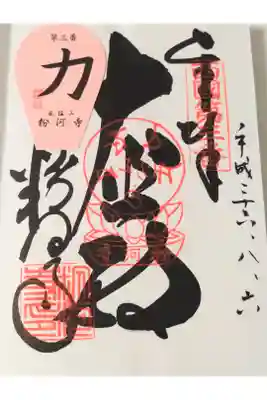 平成二十六・八・六
奉拝
大悲殿
粉河寺
第三番
力
風猛山
粉河寺